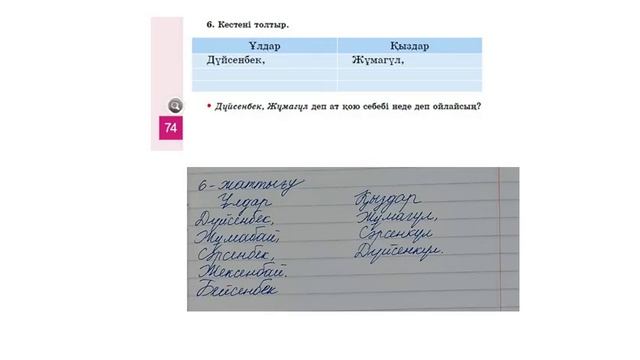 6. Кестені толтыр.
Ұлдар Қыздар
Дүйсенбек, Жұмагүл,
• Дүйсенбек, Жұмагүл деп ат қою себебі неде деп ойлайсың?
74
6-жаттығу
Ұлдар Қыздар
Дүйсенбек, Жұмагүл,
Жұмабай, Сәрсенкүл
Сәрсенбек, Дүйсенкүл.
Жексенбай.
Бейсенбек